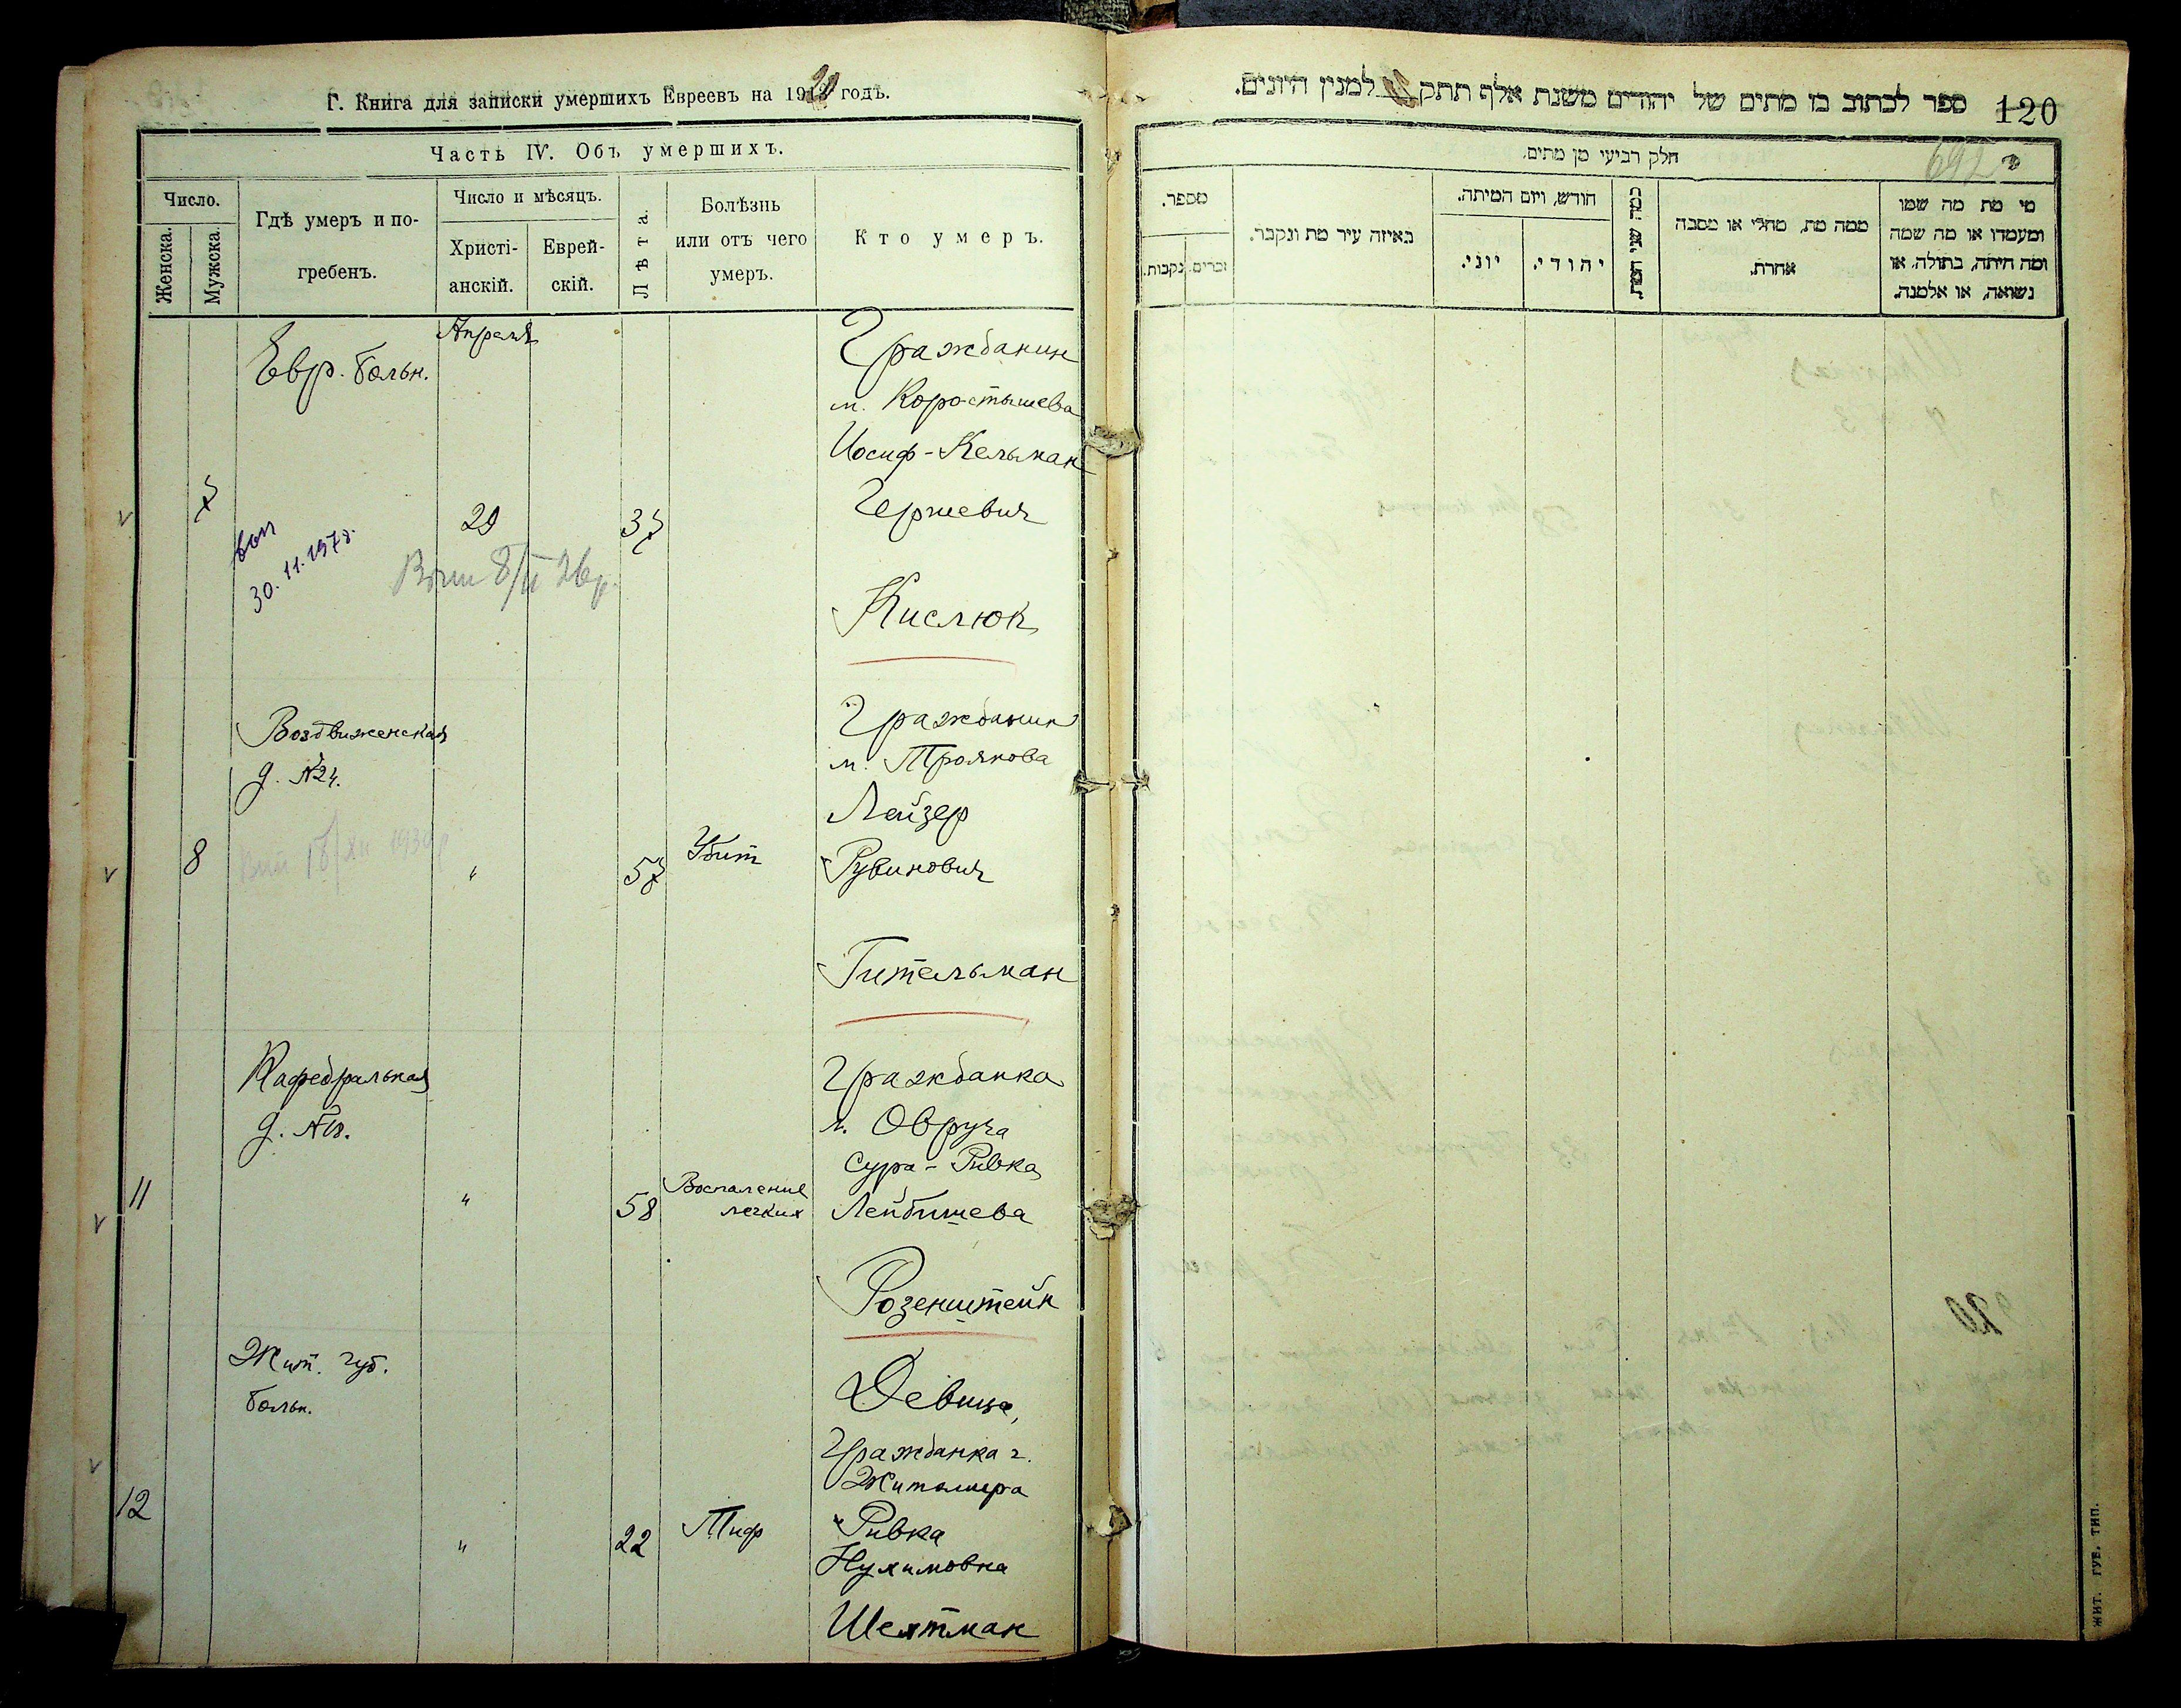 Г. Книга для записки умершихъ Евреевъ на 1920 годъ.
Часть IV. Объ умершихъ.
Число.
Женска.
Мужска.
Гдѣ умеръ и по-
гребенъ.
Число и мѣсяцъ.
Христі-
анскій.
Еврей-
скій.
Лѣта.
Болѣзнь
или отъ чего
умеръ.
Кто умеръ.
Апреля
Евр. больн.
7
29
37
Гражданин
м. Коростышева
Иосиф-Кельман
Гершевич
Кислюк
30.11.197
Воздвиженская
д. №24.
8
"
57
Убит
Гражданин
м. Троянова
Лейзер
Рувинович
Гительман
Кафедральная
д. №18.
11
"
58
Воспаление
легких
Гражданка
г. Овруча
Сура-Ривка
Лейбишева
Розенштейн
Жит. губ.
больн.
12
"
22
Тиф
Девица,
Гражданка г.
Житомира
Ривка
Нухимовна
Шехтман
ספר לכתוב בו מתים של יהודים משנת אלף תתק למנין היונים.
120
692
חלק רביעי מן מתים.
מספר.
נקבות.
זכרים.
באיזה עיר מת ונקבר.
חודש, ויום המיתה.
יוני.
יהודי.
כמה שני המת
ממה מת, מחלי או מסבה
אחרת.
מי מת מה שמו
ומעמדו או מה שמה
ומה היתה, בתולה, או
נשואה, או אלמנה.
20
ЖИТ. ГУБ. ТИП.